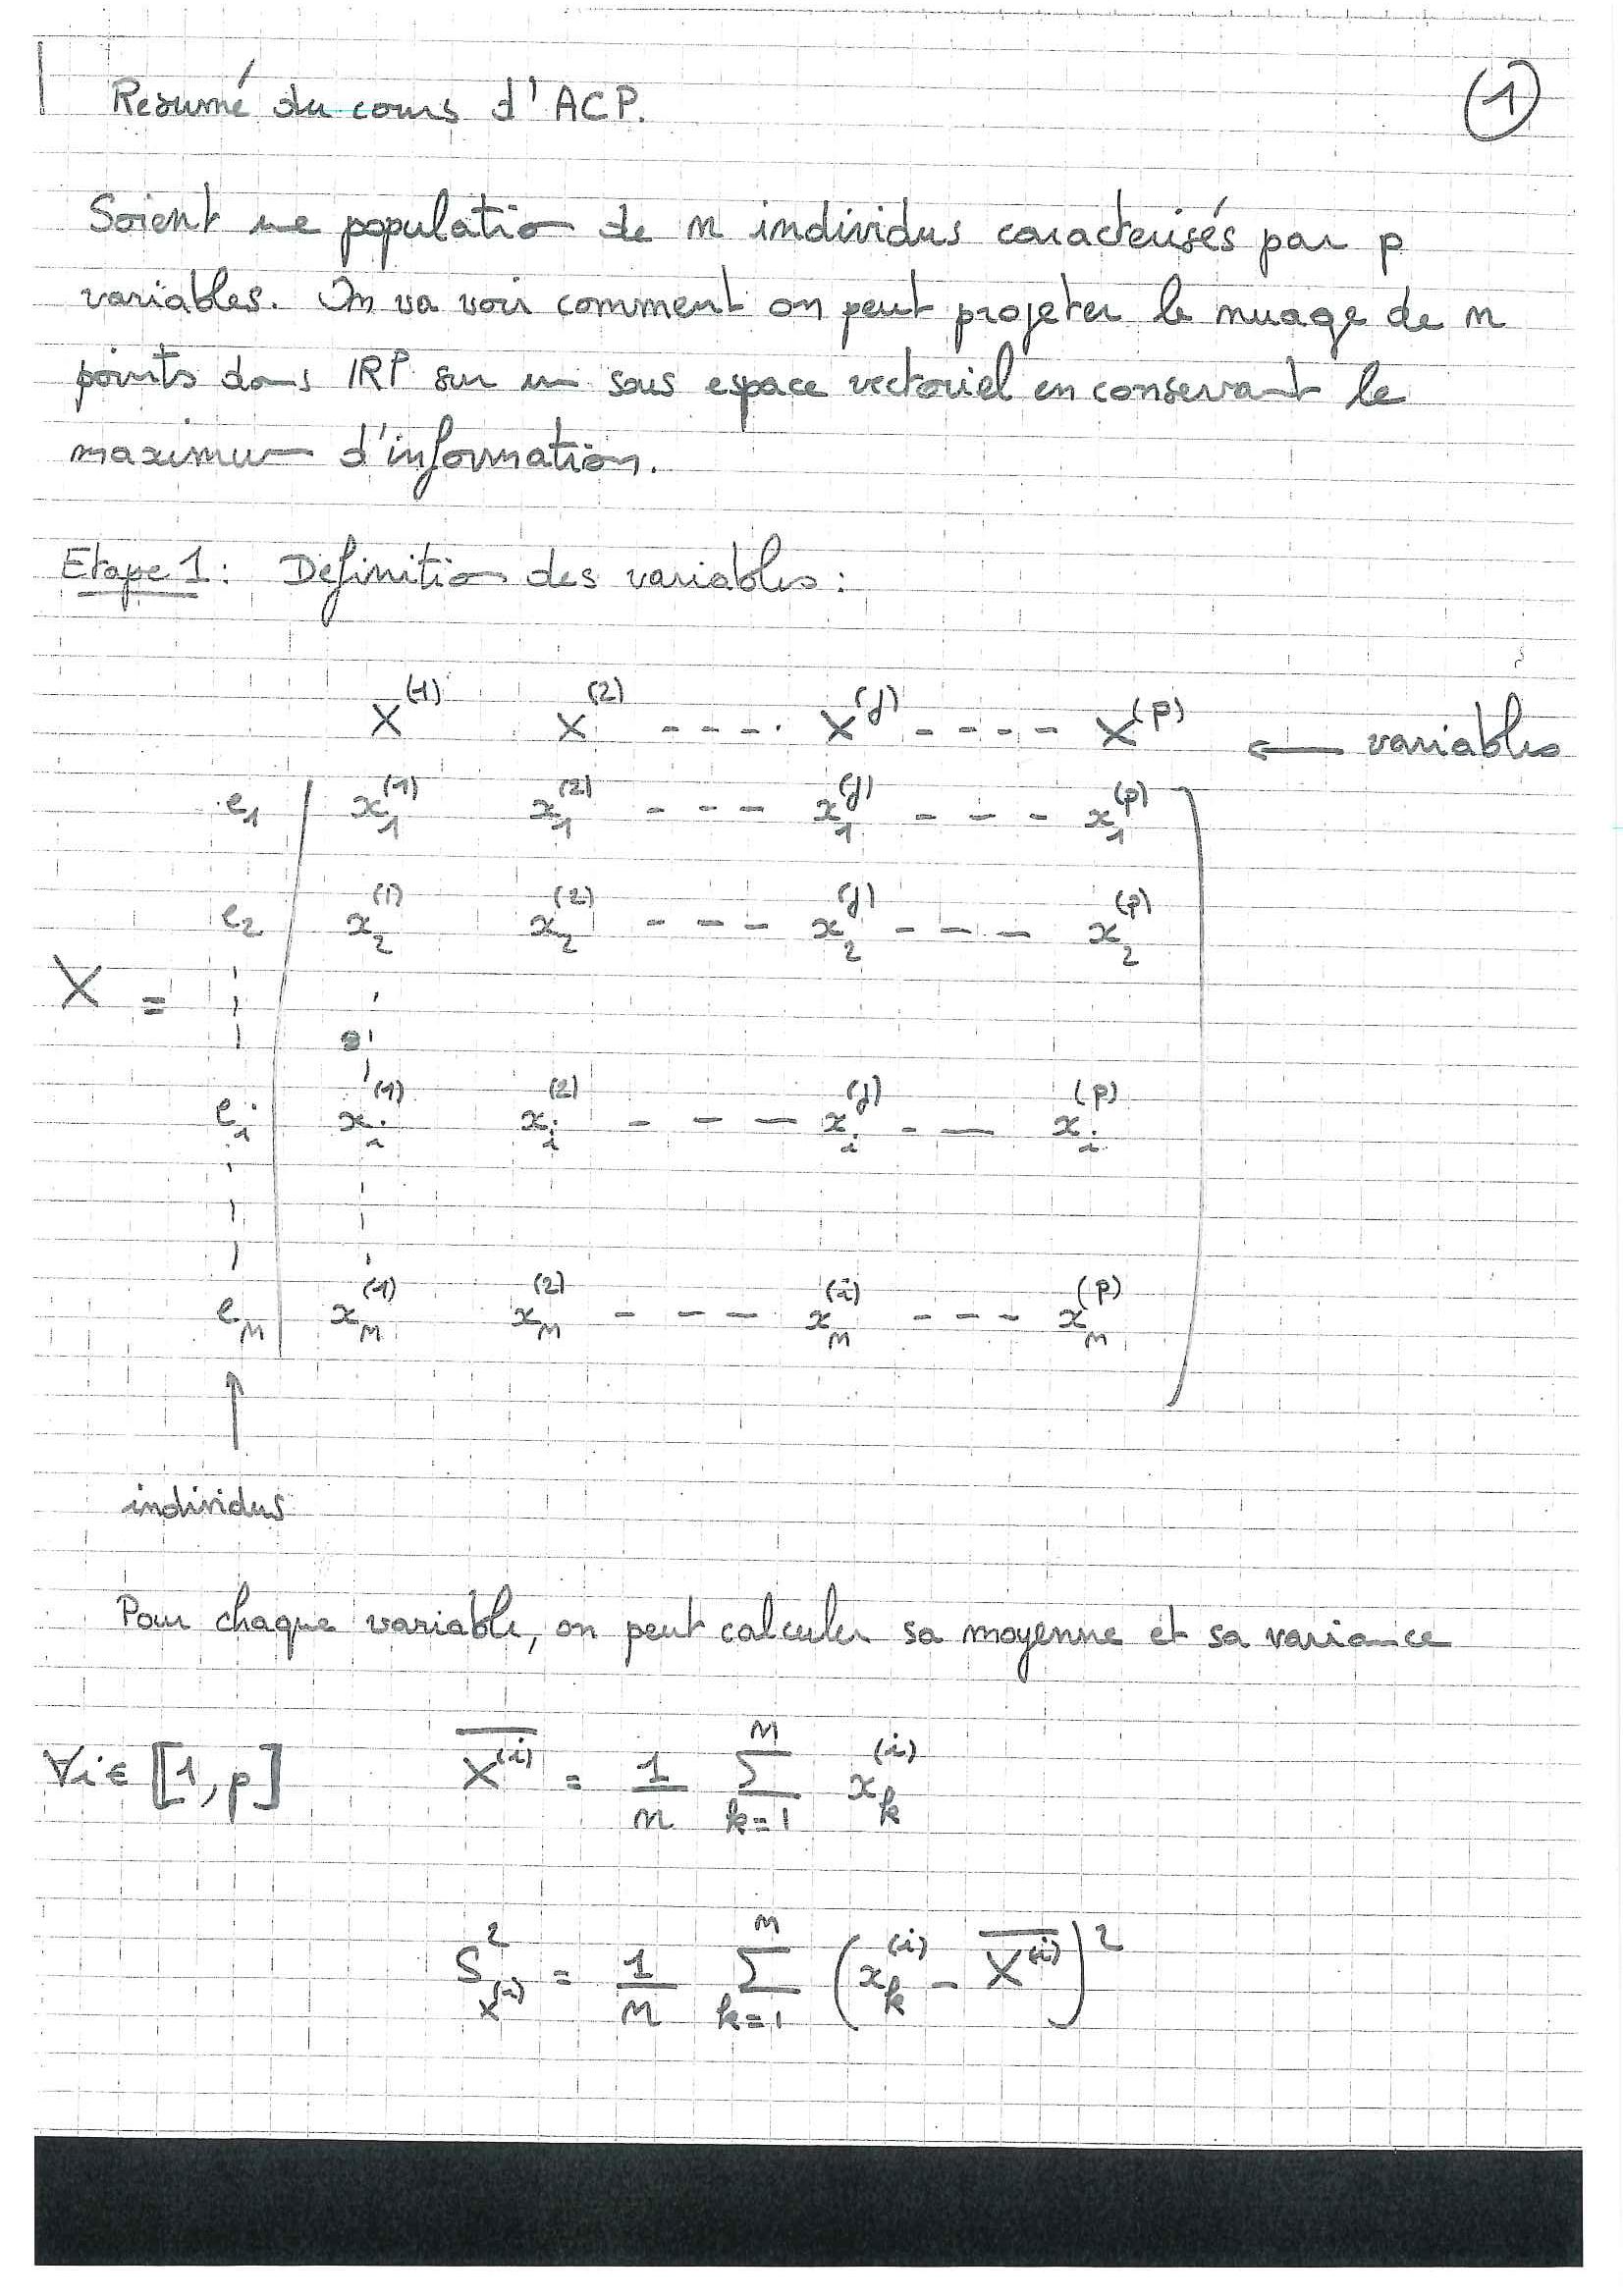 Resumé du cours d'ACP.
(1)
Soient une population de n individus caracterisés par p
variables. On va voir comment on peut projeter le nuage de n
points dans IR^p sur un sous espace vectoriel en conservant le
maximum d'information.
Etape 1 : Definition des variables :
X^(1) X^(2) - - - - X^(j) - - - - X^(p) ← variables
e_1 x_1^(1) x_1^(2) - - - x_1^(j) - - - x_1^(p)
e_2 x_2^(1) x_2^(2) - - - x_2^(j) - - - x_2^(p)
X =
e_i x_i^(1) x_i^(2) - - - x_i^(j) - - x_i^(p)
e_n x_n^(1) x_n^(2) - - - x_n^(i) - - - x_n^(p)
↑
individus
Pour chaque variable, on peut calculer sa moyenne et sa variance
∀i ∈ [1,p] \overline{X^(i)} = 1/n ∑_{k=1}^{n} x_k^(i)
S^2_{X^(i)} = 1/n ∑_{k=1}^{n} (x_k^(i) - \overline{X^(i)})^2